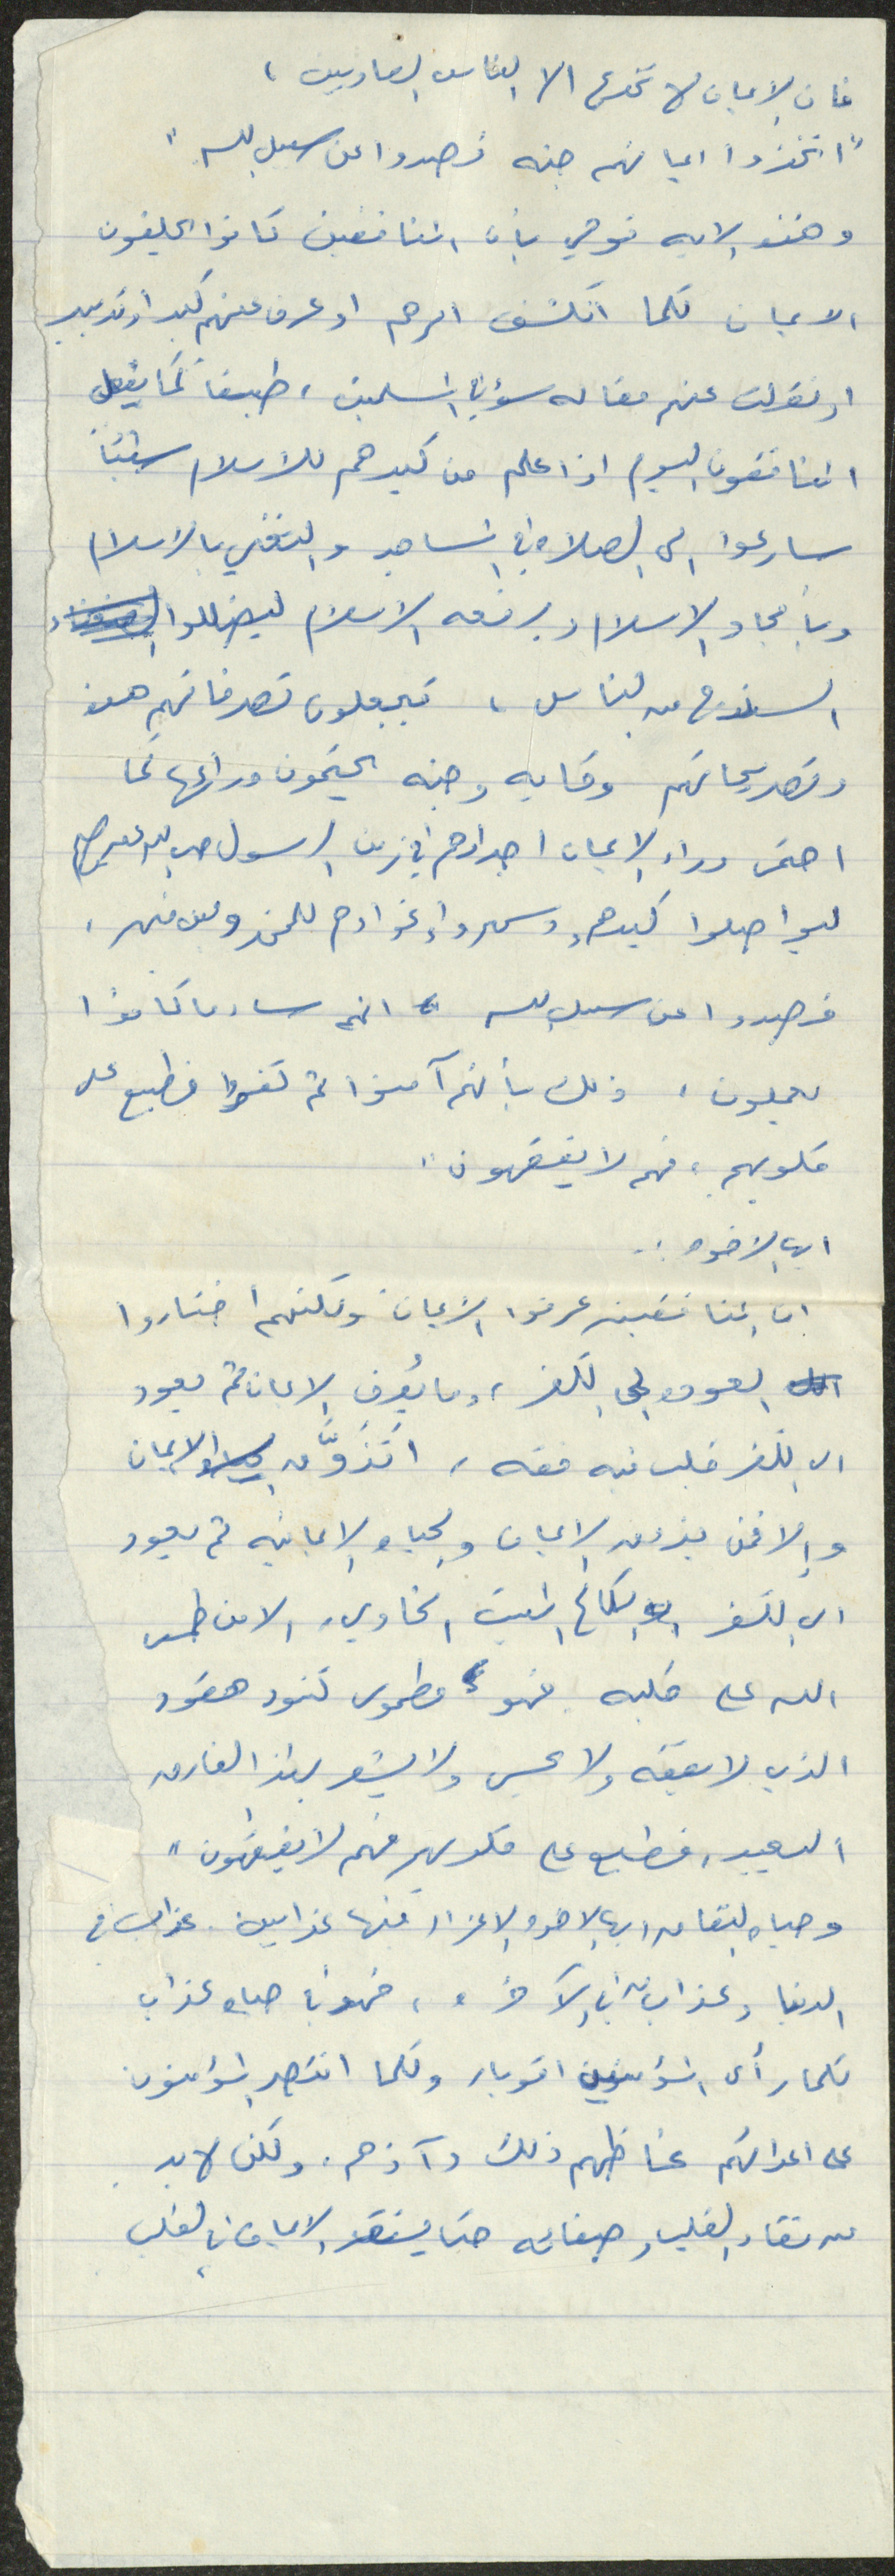 فان الايمان لا تخدع الا الناس العاديين ،
"اتخذوا ايمانهم جنه فصدوا عن سبيل الله"
وهذه الايه توحي بأن المنافقين كانوا يحلفون
الايمان كلما انكشف امرهم او عرف عنهم كيد او تدبير
او نقلت عنهم مقاله سوء في المسلمين ، طبعاً كما يفعل
المنافقون اليوم اذا علم من كيدهم للاسلام شيئاً
سارعوا الى الصلاه في المساجد والتغني بالاسلام
وبأمجاد الاسلام وبرفعه الاسلام ليضللوا
السذج من الناس ، فيجعلون تصرفاتهم هذه
وتصريحاتهم وقايه وجنه يحتمون وراءها كما
احتمى وراء الايمان اجدادهم في زمن الرسول صلى الله عليه وسلم
ليواصلوا كيدهم و اغواءهم للمخدوعين فيهم ،
فصدوا عن سبيل الله انهم ساء ما كانوا
يعملون ، ذلك بأنهم آمنوا ثم كفروا فطبع على
قلوبهم ، فهم لا يفقهون"
ايها الاخوه :-
ان المنافقين عرفوا الايمان ولكنهم اختاروا
العوده الى الكفر ، وما يعرف الايمان ثم يعود
الى الكفر قلب فيه فقه ، او تذوق الايمان
والا فمن يذوق الايمان والحياه الايمانيه ثم يعود
الى الكفر الكالح الميت الخاوي ، الا من طمس
الله على قلبه فهو مطموس كنود حقود
الذي لا يفقه ولا يحس ولا يشعر بهذا الفارق
البعيد ، فطبع على قلوبهم فهم لا يفقهون"
وحياه النفاق ايها الاخوه الاعزاء فيها عذابين . عذاب في
الدنيا وعذاب في الآخره ، فهو في حياه عذاب
كلما رأى المؤمنين اقوياء وكلما انتصر المؤمنون
على اعدائهم غاظهم ذلك وآذاهم . ولكن لا بد
من نقاء القلب وصفائه حتى يستقر الايمان في القلب